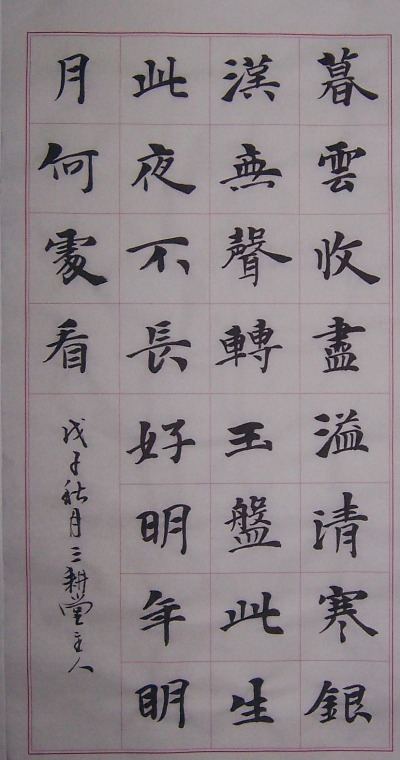 暮雲收盡溢清寒銀
漢無聲轉玉盤此生
此夜不長好明年明
月何處看
戊子秋月三耕堂主人